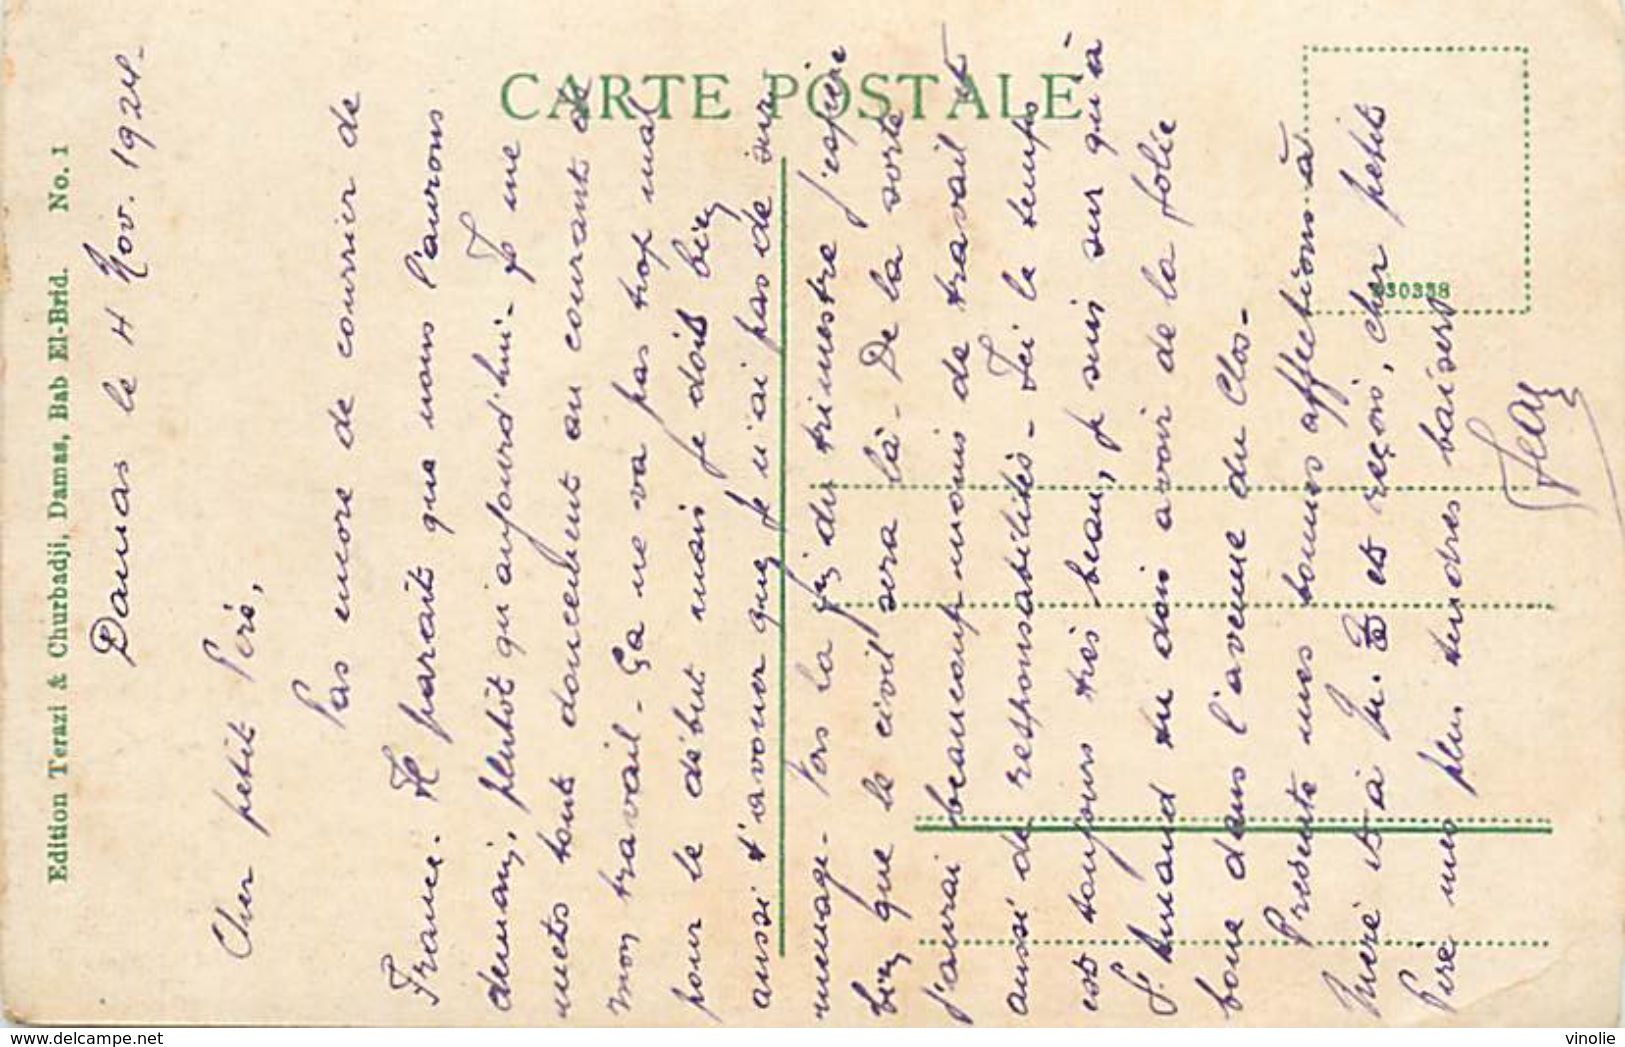 CARTE POSTALE
Edition Terazi & Churbadji, Damas, Bab El-Brid. No. 1
Damas le 4 Nov. 1924.
Cher petit Père,
Pas encore de courrier de
France. Il paraît que nous l'aurons
demain, plutôt qu'aujourd'hui - Je me
mets tout doucement au courant de
mon travail - Ça ne va pas trop mal
pour le début mais je dois bien
aussi t'avouer que je n'ai pas de sur
menage - Vers la fin du trimestre j'espère
bien que le civil sera là - De la sorte
j'aurai beaucoup moins de travail et
aussi de responsabilités - Ici le temps
est toujours très beau, je suis sur qu'à
St Amand tu dois avoir de la folie
boue dans l'avenue du Clos -
Présente mes bonnes affections à
Mère et à M. et reçois, cher petit
Père mes plus tendres baisers
Jean
vinolie